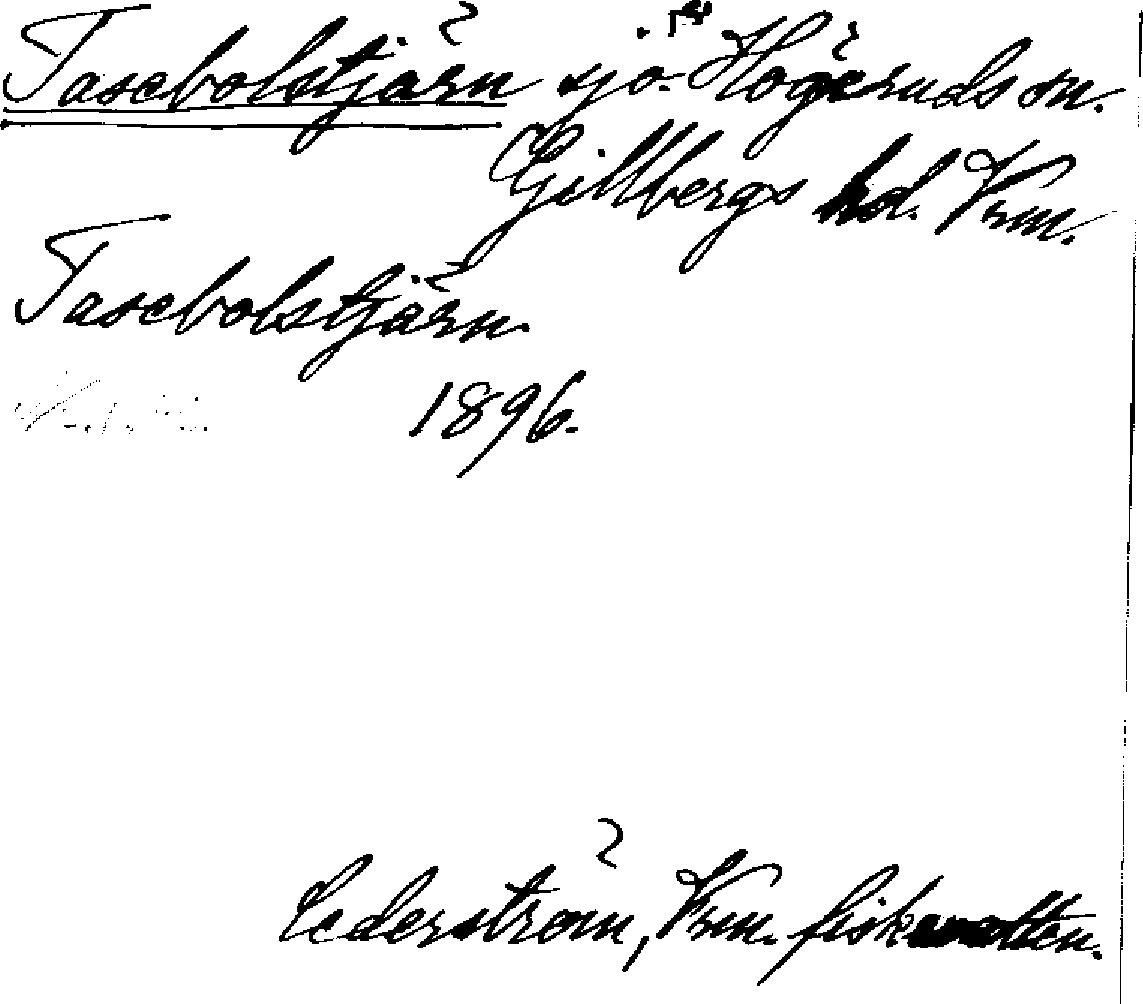 Tasebolstjärn sjö. Högeruds sn.
Gillbergs hd. Vrm.
Tasebolstjärn.
1896.
Cederström, Vrm. fiskevatten.